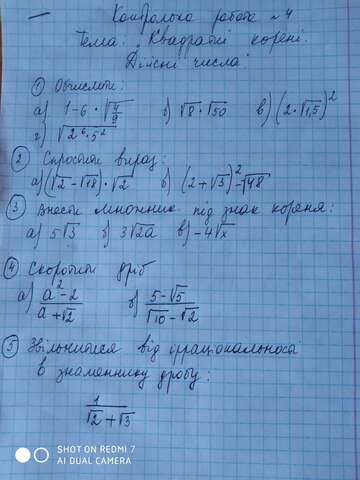 Контрольна робота №4
Тема: Квадратні корені.
Дійсні числа.
① Обчислити:
а) 1-6·√(4/9) б) √8·√50 в) (2·√1,5)²
г) √(2⁶·5²)
② Спростити вираз:
а) (√2-√18)·√2 б) (2+√3)²-√48
③ Внести множник під знак кореня:
а) 5√3 б) 3√2a в) -4√x
④ Скоротити дріб
а) (a²-2)/(a+√2) б) (5-√5)/(√10-√2)
⑤ Звільнитися від ірраціональності
в знаменнику дробу:
1/(√2+√3)
SHOT ON REDMI 7
AI DUAL CAMERA